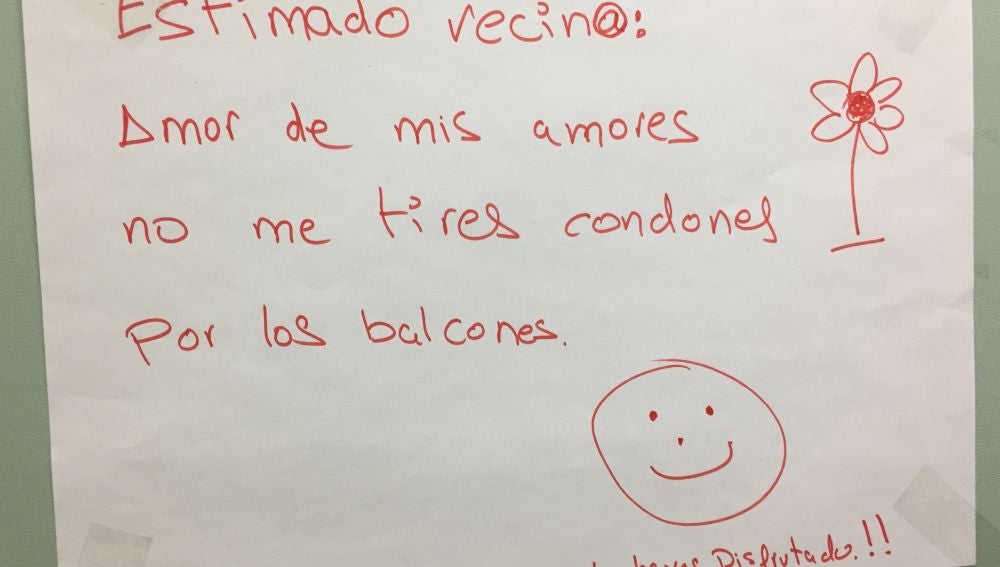 Estimado vecin@:
Amor de mis amores
no me tires condones
Por los balcones.
hayas Disfrutado.!!